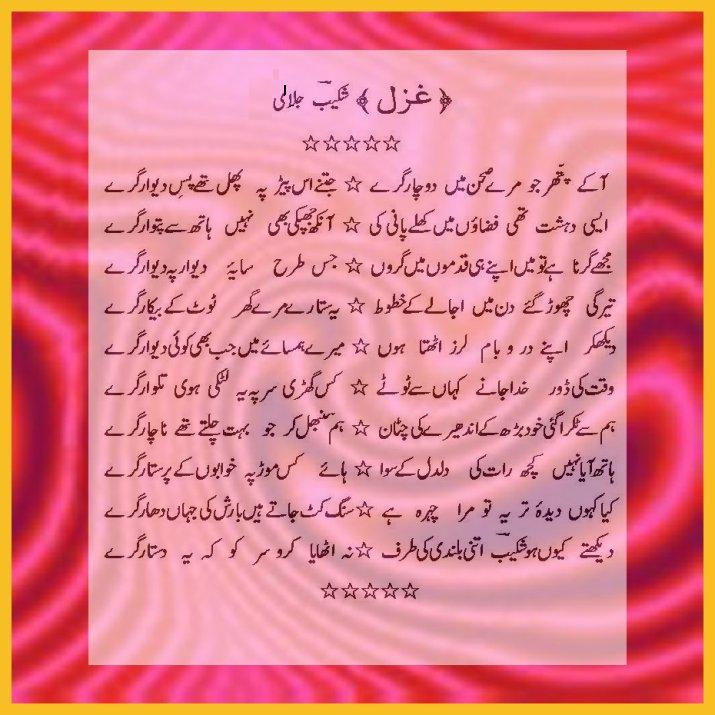 ﴿ غزل ﴾ شکیبؔ جلالی
☆☆☆☆☆
آکے پتّھر جو مرے صحن میں دوچار گرے ☆ جتنے اس پیڑ پہ پھل تھے پسِ دیوار گرے
ایسی دہشت تھی فضاؤں میں کھلے پانی کی ☆ آنکھ جھپکی بھی نہیں ہاتھ سے پتوار گرے
مجھے گرنا ہے تو میں اپنے ہی قدموں میں گروں ☆ جس طرح سایۂ دیوار پہ دیوار گرے
تیرگی چھوڑ گئے دن میں اجالے کے خطوط ☆ یہ ستارے مرے گھر ٹوٹ کے بیکار گرے
دیکھکر اپنے در و بام لرز اٹھتا ہوں ☆ میرے ہمسائے میں جب بھی کوئی دیوار گرے
وقت کی ڈور خدا جانے کہاں سے ٹوٹے ☆ کس گھڑی سر پہ یہ لٹکی ہوی تلوار گرے
ہم سے ٹکرا گئی خود بڑھ کے اندھیرے کی چٹان ☆ ہم سنبھل کر جو بہت چلتے تھے ناچار گرے
ہاتھ آیا نہیں کچھ رات کی دلدل کے سوا ☆ ہائے کس موڑ پہ خوابوں کے پرستار گرے
کیا کہوں دیدۂ تر یہ تو مرا چہرہ ہے ☆ سنگ کٹ جاتے ہیں بارش کی جہاں دھار گرے
دیکھتے کیوں ہو شکیبؔ اتنی بلندی کی طرف ☆ نہ اٹھایا کرو سر کو کہ یہ دستار گرے
☆☆☆☆☆